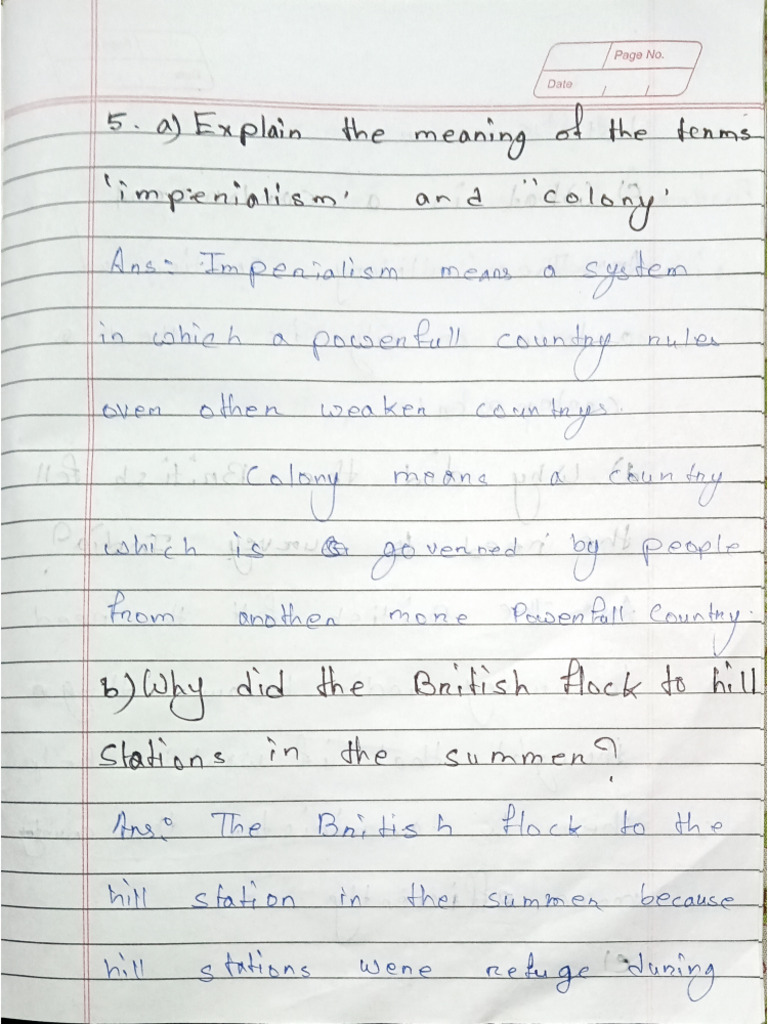 Page No.
Date / /
5. a) Explain the meaning of the terms
'imperialism' and "colony'
Ans: Imperialism means a system
in which a powerfull country rules
over other weaker countrys.
Colony means a country
which is governed by people
from another more Powerfull Country.
b) Why did the British flock to hill
Stations in the summer?
Ans: The British flock to the
hill station in the summer because
hill stations were refuge during